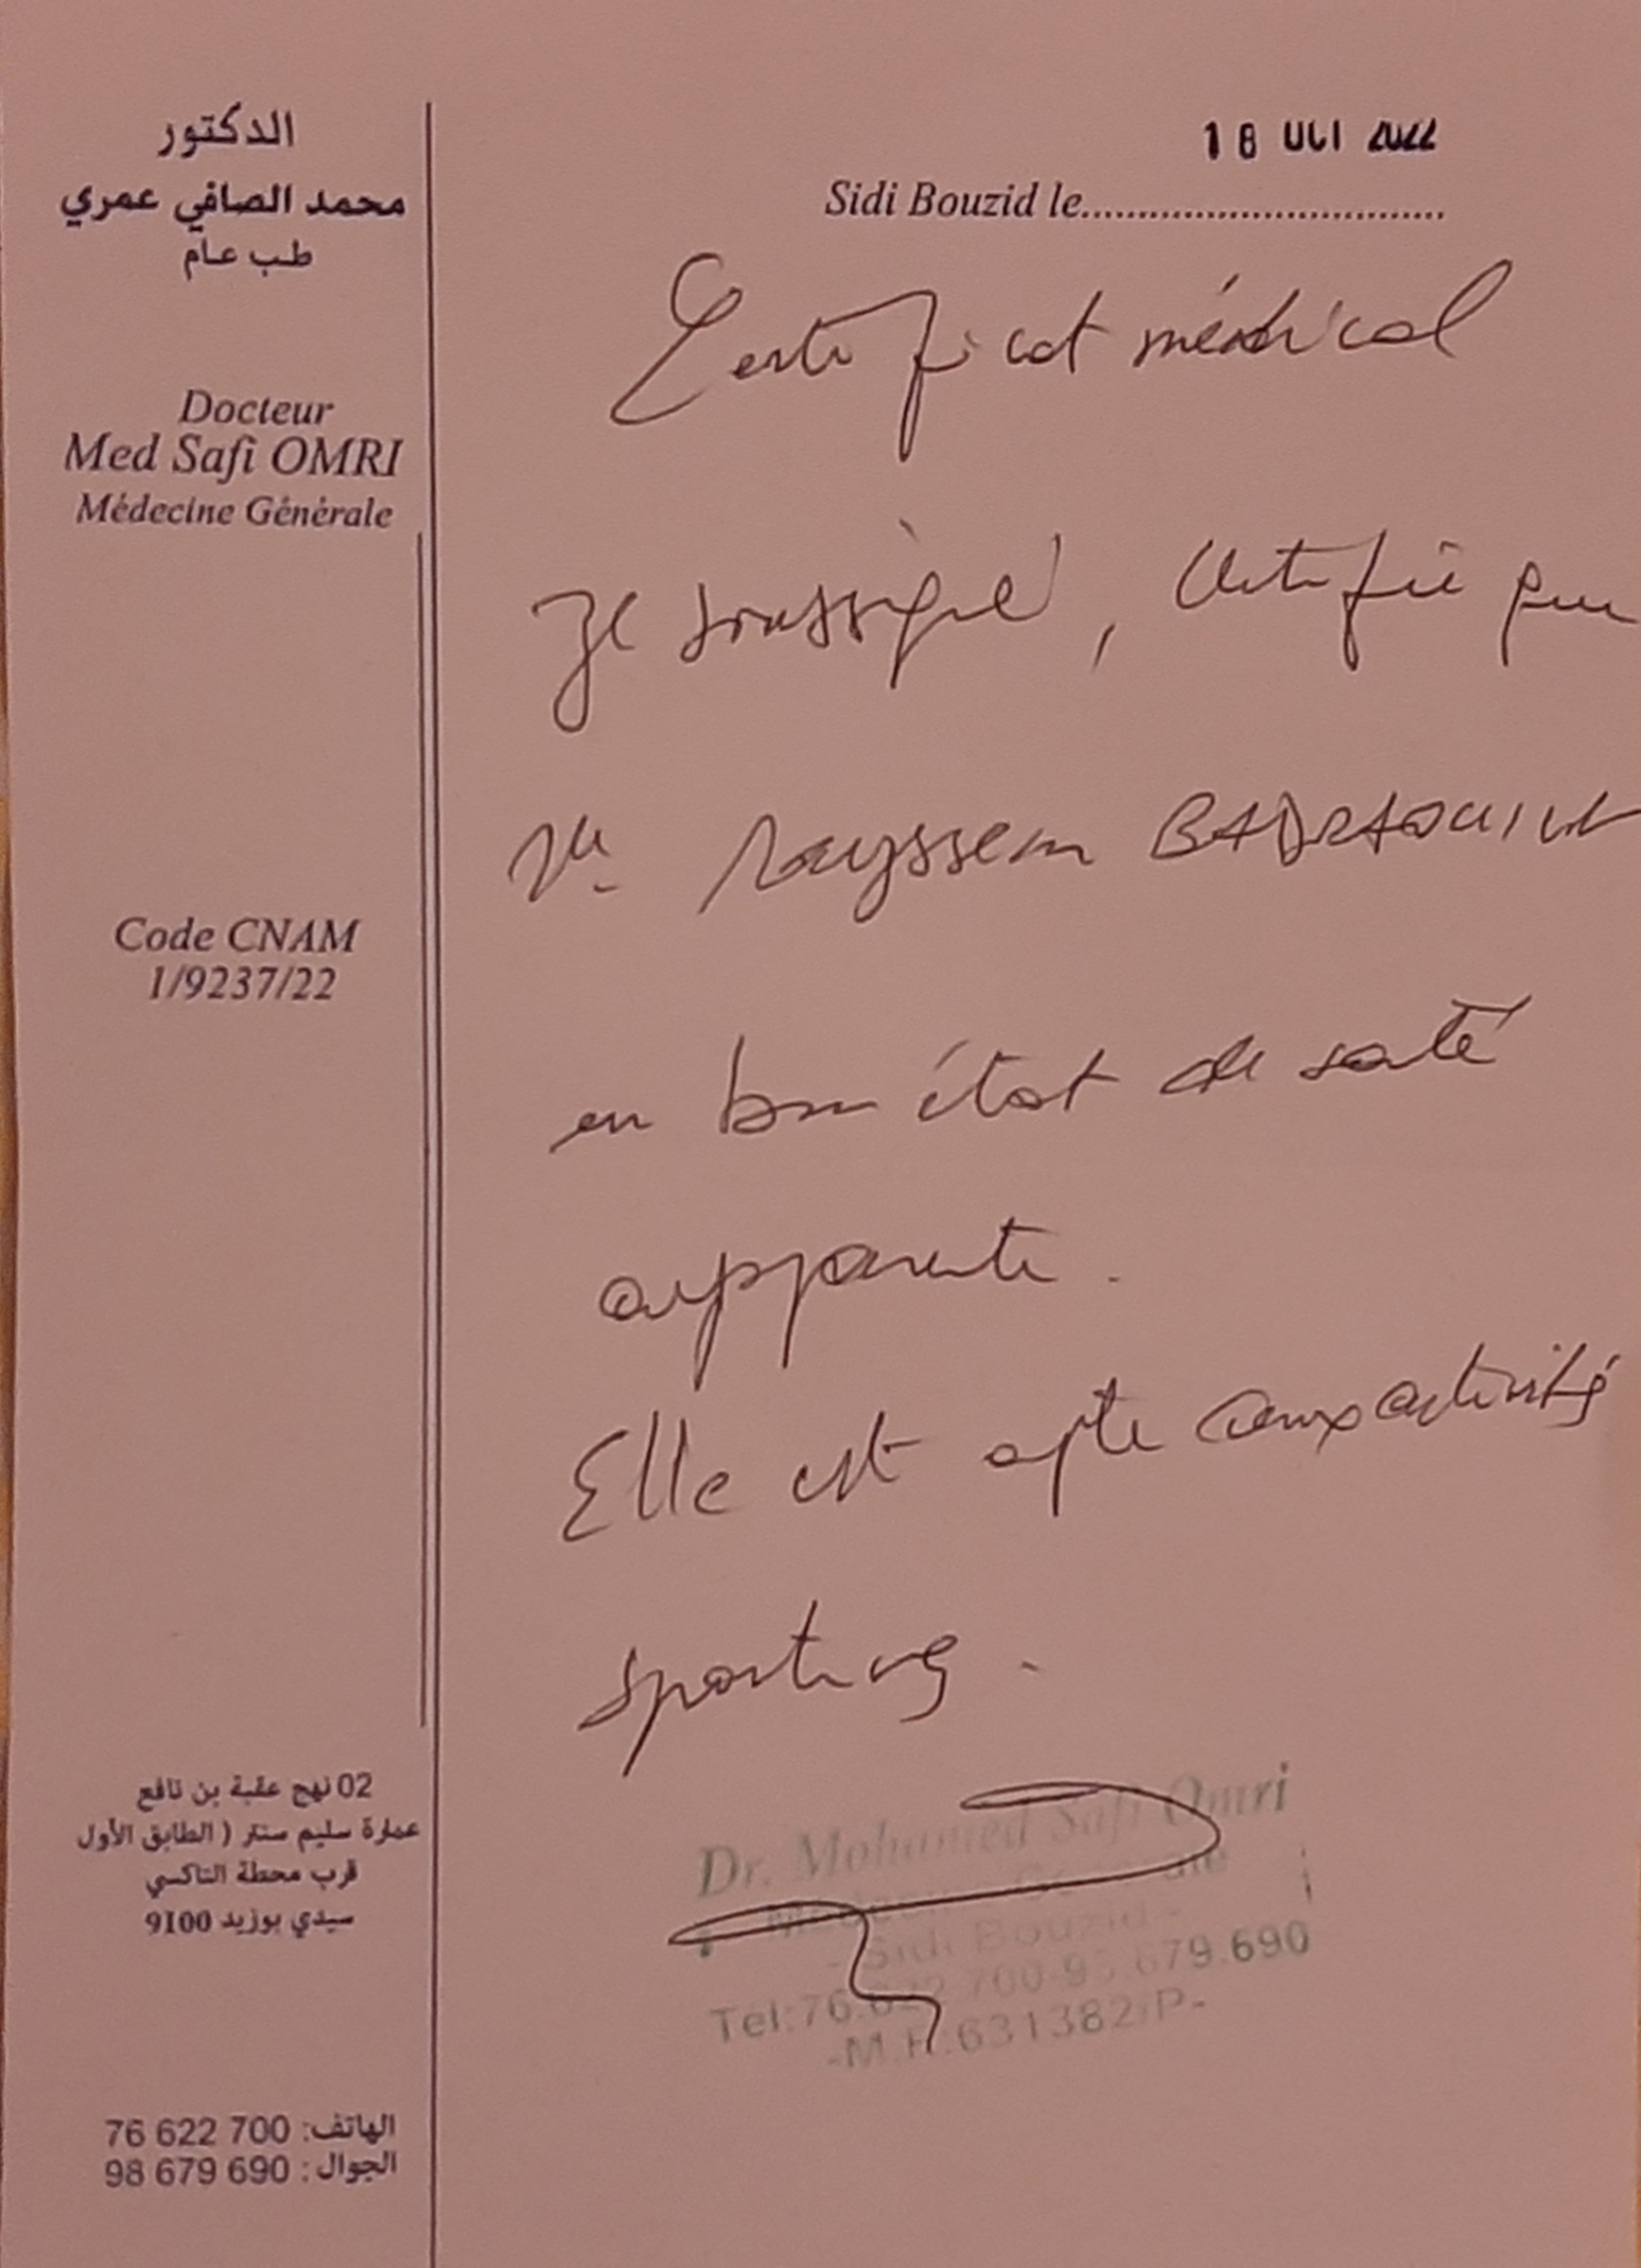 الدكتور
محمد الصافي عمري
طب عام
Docteur
Med Safi OMRI
Médecine Générale
Code CNAM
1/9237/22
02 نهج عقبة بن نافع
عمارة سليم سنتر ( الطابق الأول
قرب محطة التاكسي
سيدي بوزيد 9100
الهاتف: 76 622 700
الجوال : 98 679 690
18 OCT 2022
Sidi Bouzid le
Certificat médical
Je soussigné, certifie que
Mlle Rayssem
en bon état de santé
apparente.
Elle est apte aux activités
sportives.
Dr. Mohamed Safi Omri
Médecine Générale
- Sidi Bouzid -
Tel:76.622.700-98.679.690
631382/P-